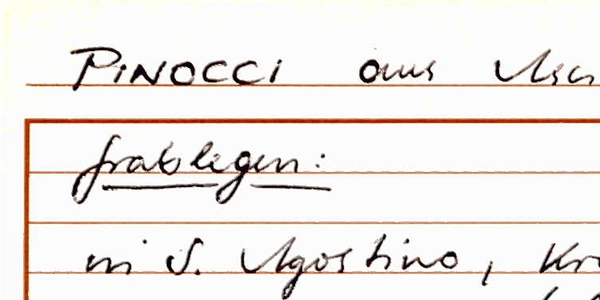 PINOCCI aus
Grablegen:
in S. Agostino, Kr